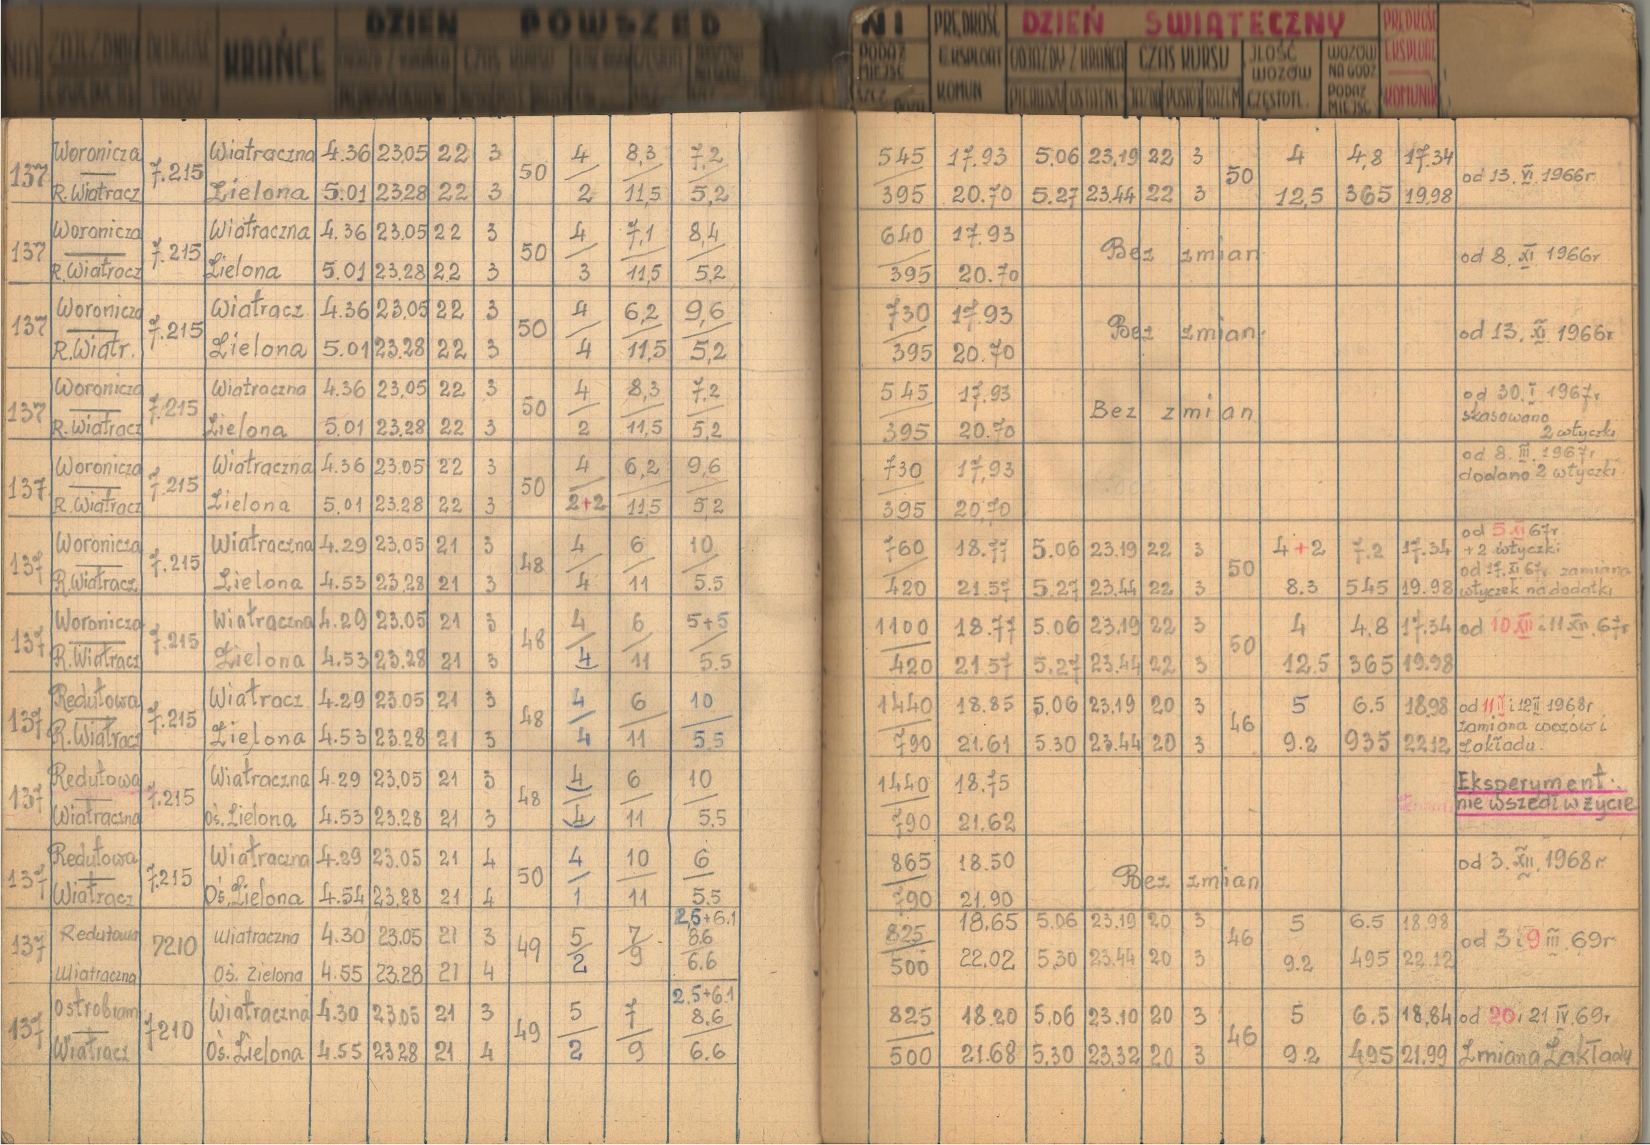 DZIEŃ POWSZED
NI PRĘDKOŚĆ DZIEŃ ŚWIĄTECZNY PRĘDKOŚĆ
KRAŃCE
PODAŻ MIEJSC EKSPLOAT ODJAZDY Z KRAŃCA CZAS KURSU ILOŚĆ WOZÓW WOZÓW NA GODZ EKSPLOAT
KOMUN PIERWSZY OSTATNI JAZDA POSTÓJ RAZEM CZĘSTOTL. PODAŻ MIEJSC KOMUNIK
Woronicza Wiatraczna 4.36 23.05 22 3 4 8,3 7,2 545 17.93 5.06 23.19 22 3 4 4,8 17.34
137 7.215 50 50 od 13. VI. 1966r
R.Wiatracz Zielona 5.01 23.28 22 3 2 11,5 5,2 395 20.70 5.27 23.44 22 3 12,5 365 19.98
Woronicza Wiatraczna 4.36 23.05 22 3 4 7,1 8,4 640 17.93
137 7.215 50 Bez zmian od 8. XI. 1966r
R.Wiatracz Zielona 5.01 23.28 22 3 3 11,5 5,2 395 20.70
Woronicza Wiatracz 4.36 23.05 22 3 4 6,2 9,6 730 17.93
137 7.215 50 Bez zmian. od 13. XI. 1966r
R.Wiatr. Zielona 5.01 23.28 22 3 4 11,5 5,2 395 20.70
Woronicza Wiatraczna 4.36 23.05 22 3 4 8,3 7,2 545 17.93 od 30. I. 1967r
137 7.215 50 Bez zmian skasowano
R.Wiatracz Zielona 5.01 23.28 22 3 2 11,5 5,2 395 20.70 2 wtyczki
Woronicza Wiatraczna 4.36 23.05 22 3 4 6,2 9,6 730 17,93 od 8. III. 1967r
137 7.215 50 dodano 2 wtyczki
R.Wiatracz Zielona 5.01 23.28 22 3 2+2 11,5 5,2 395 20.70
Woronicza Wiatraczna 4.29 23.05 21 3 4 6 10 760 18.77 5.06 23.19 22 3 4+2 7.2 17.34 od 5 XI 67r
137 7.215 48 50 +2 wtyczki
R.Wiatracz Zielona 4.53 23.28 21 3 4 11 5.5 420 21.57 5.27 23.44 22 3 8.3 545 19.98 od 17. XI 67r zamiana
wtyczek na dodatki
Woronicza Wiatraczna 4.29 23.05 21 3 4 6 5+5 1100 18.77 5.06 23.19 22 3 4 4.8 17.34 od 10 XII i 11 XII. 67r
137 7.215 48 50
R.Wiatracz Zielona 4.53 23.28 21 3 4 11 5.5 420 21.57 5.27 23.44 22 3 12.5 365 19.98
Redutowa Wiatracz 4.29 23.05 21 3 4 6 10 1440 18.85 5.06 23.19 20 3 5 6.5 18.98 od 11 II i 12 II 1968r
137 7.215 48 46 zamiana wozów i
R.Wiatracz Zielona 4.53 23.28 21 3 4 11 5.5 790 21.61 5.30 23.44 20 3 9.2 935 22.12 Zakładu.
Redutowa Wiatraczna 4.29 23.05 21 3 4 6 10 1440 18.75 Eksperyment.
137 7.215 48 nie wszedł w życie
Wiatraczna Oś.Zielona 4.53 23.28 21 3 4 11 5.5 790 21.62
Redutowa Wiatraczna 4.29 23.05 21 4 4 10 6 865 18.50 od 3. XII. 1968r
137 7.215 50 Bez zmian
Wiatracz Oś.Zielona 4.54 23.28 21 4 1 11 5.5 790 21.90
2,5+6.1
Redutowa Wiatraczna 4.30 23.05 21 3 5 7 8.6 825 18.65 5.06 23.19 20 3 5 6.5 18.98
137 7210 49 46 od 3 i 9 III. 69r
Wiatraczna Oś. Zielona 4.55 23.28 21 4 2 9 6.6 500 22.02 5.30 23.44 20 3 9.2 495 22.12
2.5+6.1
Ostrobram Wiatraczna 4.30 23.05 21 3 5 7 8.6 825 18.20 5.06 23.10 20 3 5 6.5 18.84 od 20 i 21 IV. 69r
137 7210 49 46
Wiatracz Oś.Zielona 4.55 23.28 21 4 2 9 6.6 500 21.68 5.30 23.32 20 3 9.2 495 21.99 Zmiana Zakłady